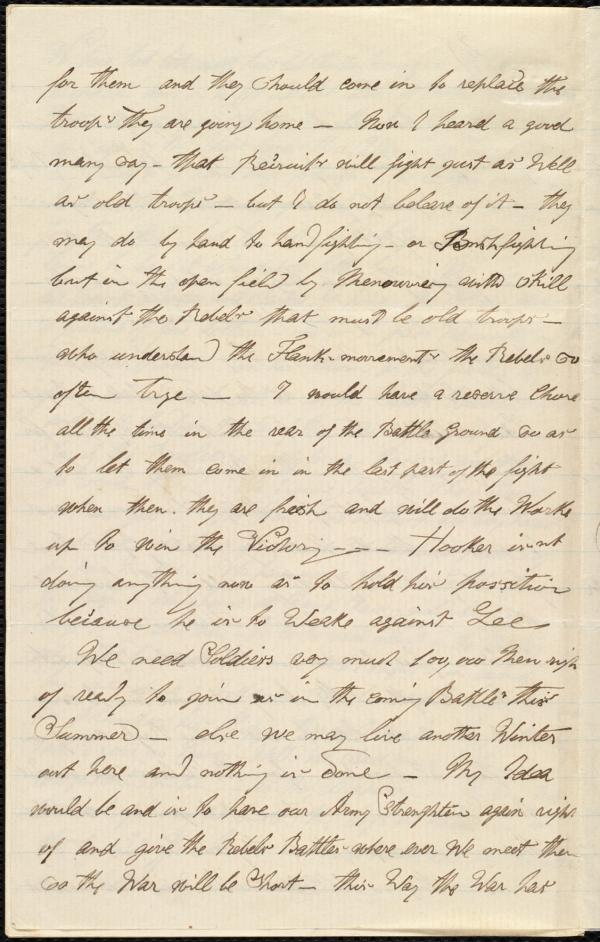 for them and they should come in to replase the
troops they are going home — Now I heard a good
many say - that Recruits will fight just as Well
as old troops — but I do not beleave of it — they
may do by hand to hand fighting - or Bushfighting
but in the open field by Menouvring with skill
against the Rebels that must be old troops —
who understand the Flank-movements the Rebels so
often trye — I would have a reserve Chore
all the time in the rear of the Battle Ground so as
to let them come in in the last part of the fight
when then they are fresh and will do the Worke
up to win the Victory — — Hooker isnt
doing anything now as to hold his possition
because he is to Weake against Lee
We need Soldiers vey much 100,000 Men righ
of ready to join us in the coming Battles this
Summer — else we may live another Winter
out here and nothing is done — My Idea
would be and is to have our Army Strenghten again right
of and give the Rebels Battles where ever We meet them
so the War will be Short — this Way the War has